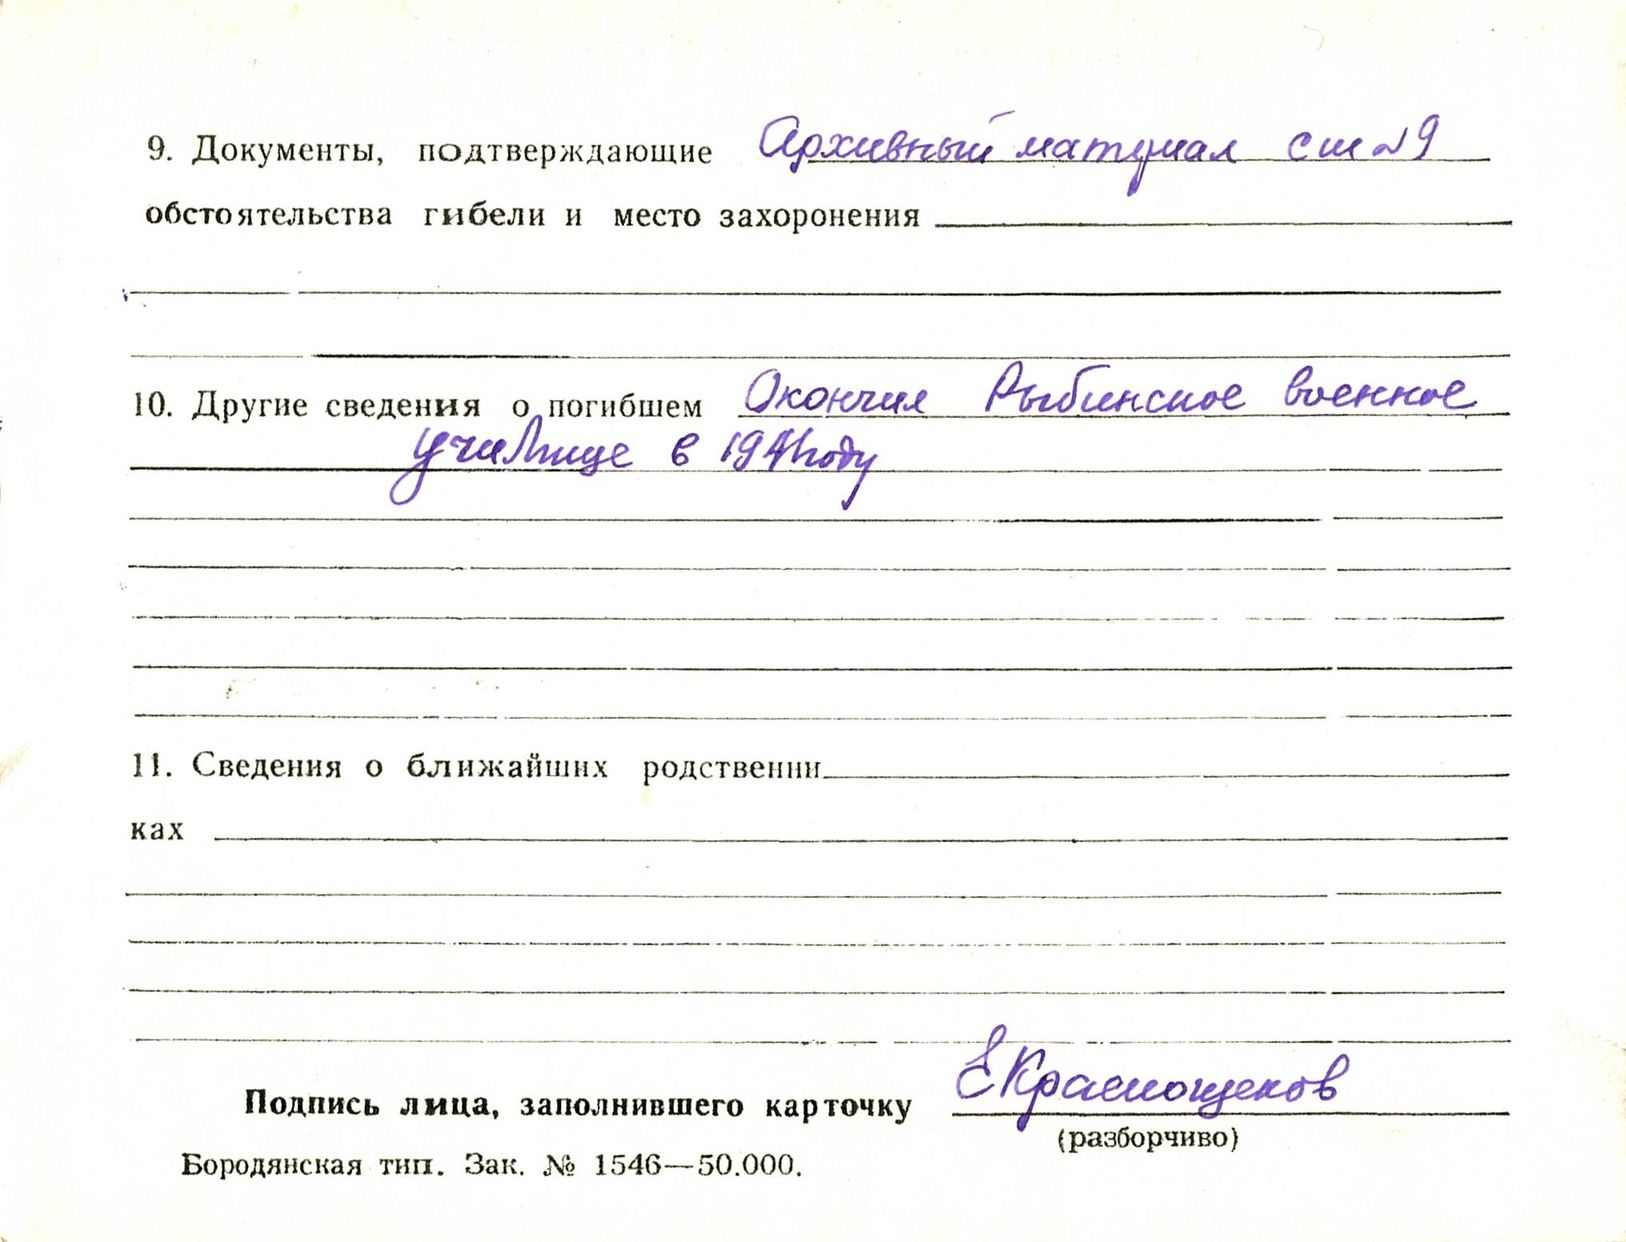 9. Документы, подтверждающие Архивный материал сш №9
обстоятельства гибели и место захоронения
10. Другие сведения о погибшем Окончил Рыбинское военное
училище в 1941 году
11. Сведения о ближайших родственни
ках
Подпись лица, заполнившего карточку ЕКраснощеков
(разборчиво)
Бородянская тип. Зак. № 1546—50.000.